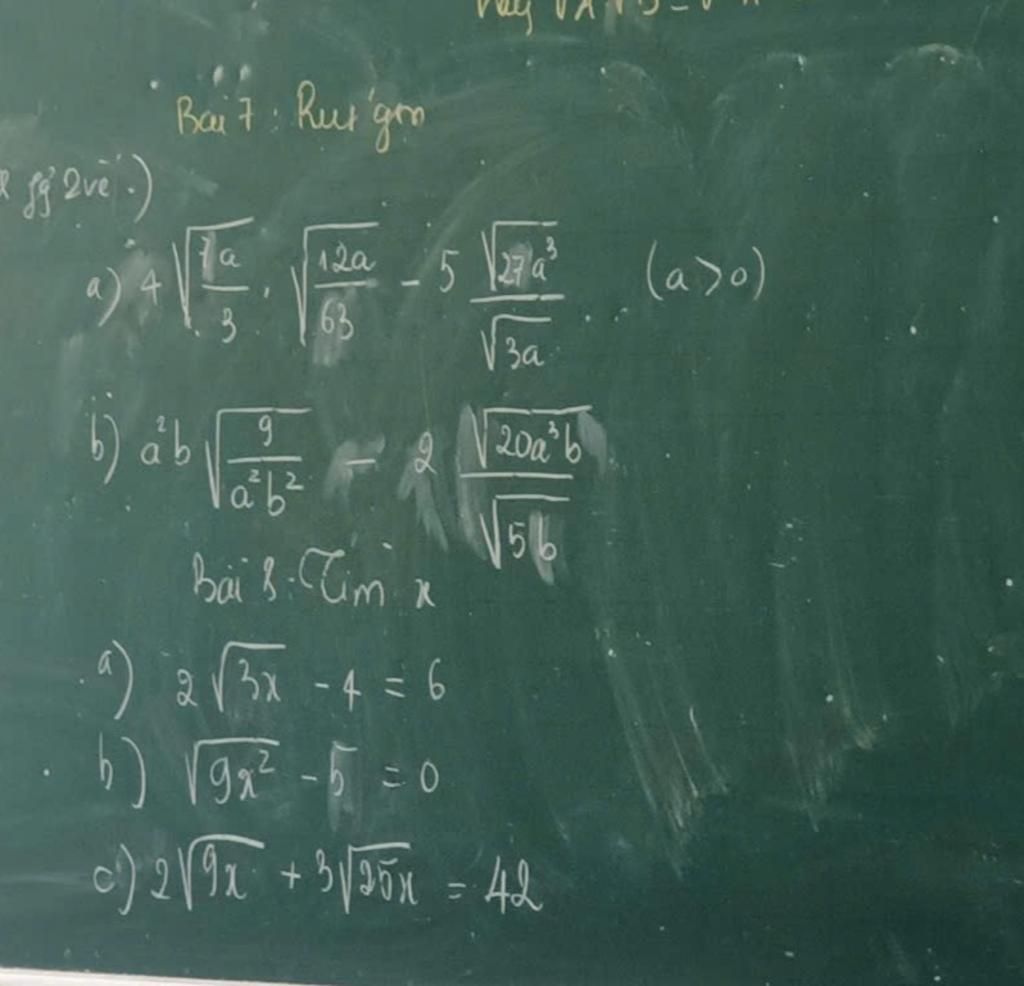 Bài 7: Rút gọn
2 vế.)
a) 4√(7a/3) . √(12a/63) - 5 √(27a³)/√(3a) (a>0)
b) a²b √(9/(a²b²)) - 2 √(20a³b)/√(5b)
Bài 8: Tìm x
a) 2√(3x) - 4 = 6
b) √(9x²) - 5 = 0
c) 2√(9x) + 3√(25x) = 42